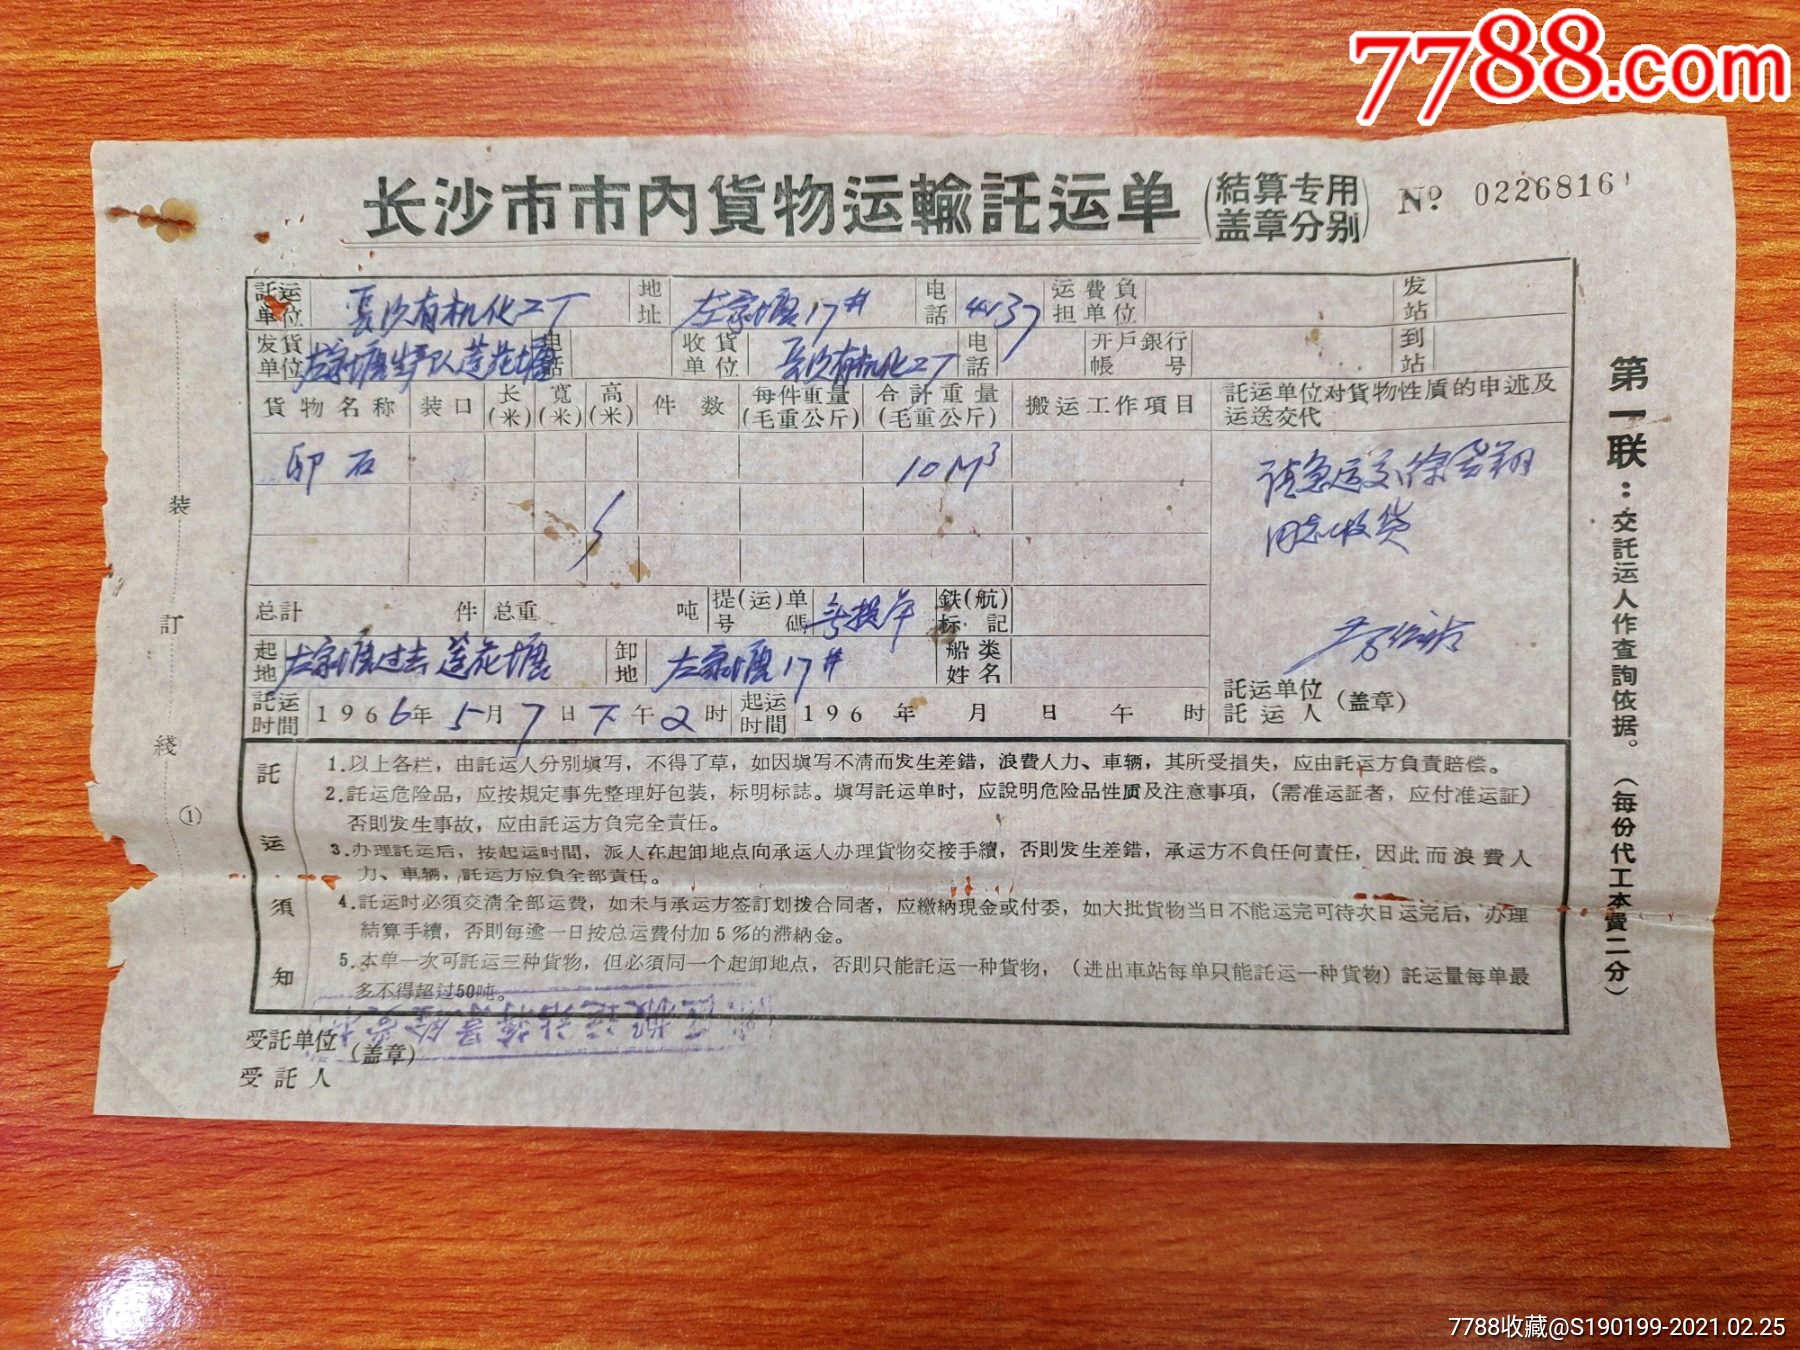 7788.com
长沙市市內貨物运輸託运单 (結算专用 盖章分别) № 0226816
託运单位 長沙有机化工厂 地址 左家塘17# 电話 4437 运費負担单位 发站
发貨单位 左家塘生产队莲花塘 电話 收貨单位 長沙有机化工厂 电話 开戶銀行帳号 到站
貨物名称 装口 长(米) 寬(米) 高(米) 件数 每件重量(毛重公斤) 合計重量(毛重公斤) 搬运工作項目 託运单位对貨物性质的申述及运送交代
卵石 10M³
请急运交徐
同志收货
总計 件 总重 吨 提(运)单号碼 鉄(航)标記
起地 左家塘过去莲花塘 卸地 左家塘17# 船类姓名
託运时間 1966年5月7日下午2时 起运时間 196 年 月 日 午 时
託运单位
託运人 (盖章)
託运須知
1.以上各栏，由託运人分別填写，不得了草，如因填写不清而发生差錯，浪費人力、車辆，其所受損失，应由託运方負責賠偿。
2.託运危险品，应按規定事先整理好包装，标明标誌。填写託运单时，应說明危险品性质及注意事項，(需准运証者，应付准运証)
否則发生事故，应由託运方負完全責任。
3.办理託运后，按起运时間，派人在起卸地点向承运人办理貨物交接手續，否則发生差錯，承运方不負任何責任，因此而浪費人
力、車辆，託运方应負全部責任。
4.託运时必須交清全部运費，如未与承运方签訂划拨合同者，应繳納現金或付委，如大批貨物当日不能运完可待次日运完后，办理
結算手續，否則每逾一日按总运費付加5%的滞納金。
5.本单一次可託运三种貨物，但必須同一个起卸地点，否則只能託运一种貨物，(进出車站每单只能託运一种貨物)託运量每单最
多不得超过50吨。
受託单位
受託人 (盖章)
第一联：交託运人作查詢依据。(每份代工本費二分)
装訂綫 ①
7788收藏@S190199-2021.02.25